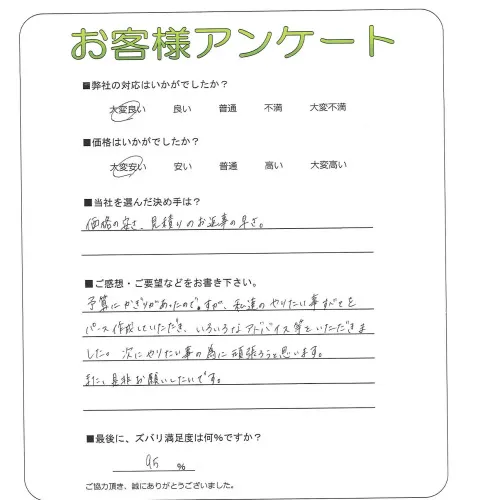 お客様アンケート
■弊社の対応はいかがでしたか？
大変良い 良い 普通 不満 大変不満
■価格はいかがでしたか？
大変安い 安い 普通 高い 大変高い
■当社を選んだ決め手は？
価格の安さ、見積りのお返事の早さ。
■ご感想・ご要望などをお書き下さい。
予算にかぎりがあったのですが、私達のやりたい事すべてを
パース作成していただき、いろいろなアドバイス等をいただきま
した。次にやりたい事の為に頑張ろうと思います。
また、是非お願いしたいです。
■最後に、ズバリ満足度は何%ですか？
95 %
ご協力頂き、誠にありがとうございました。